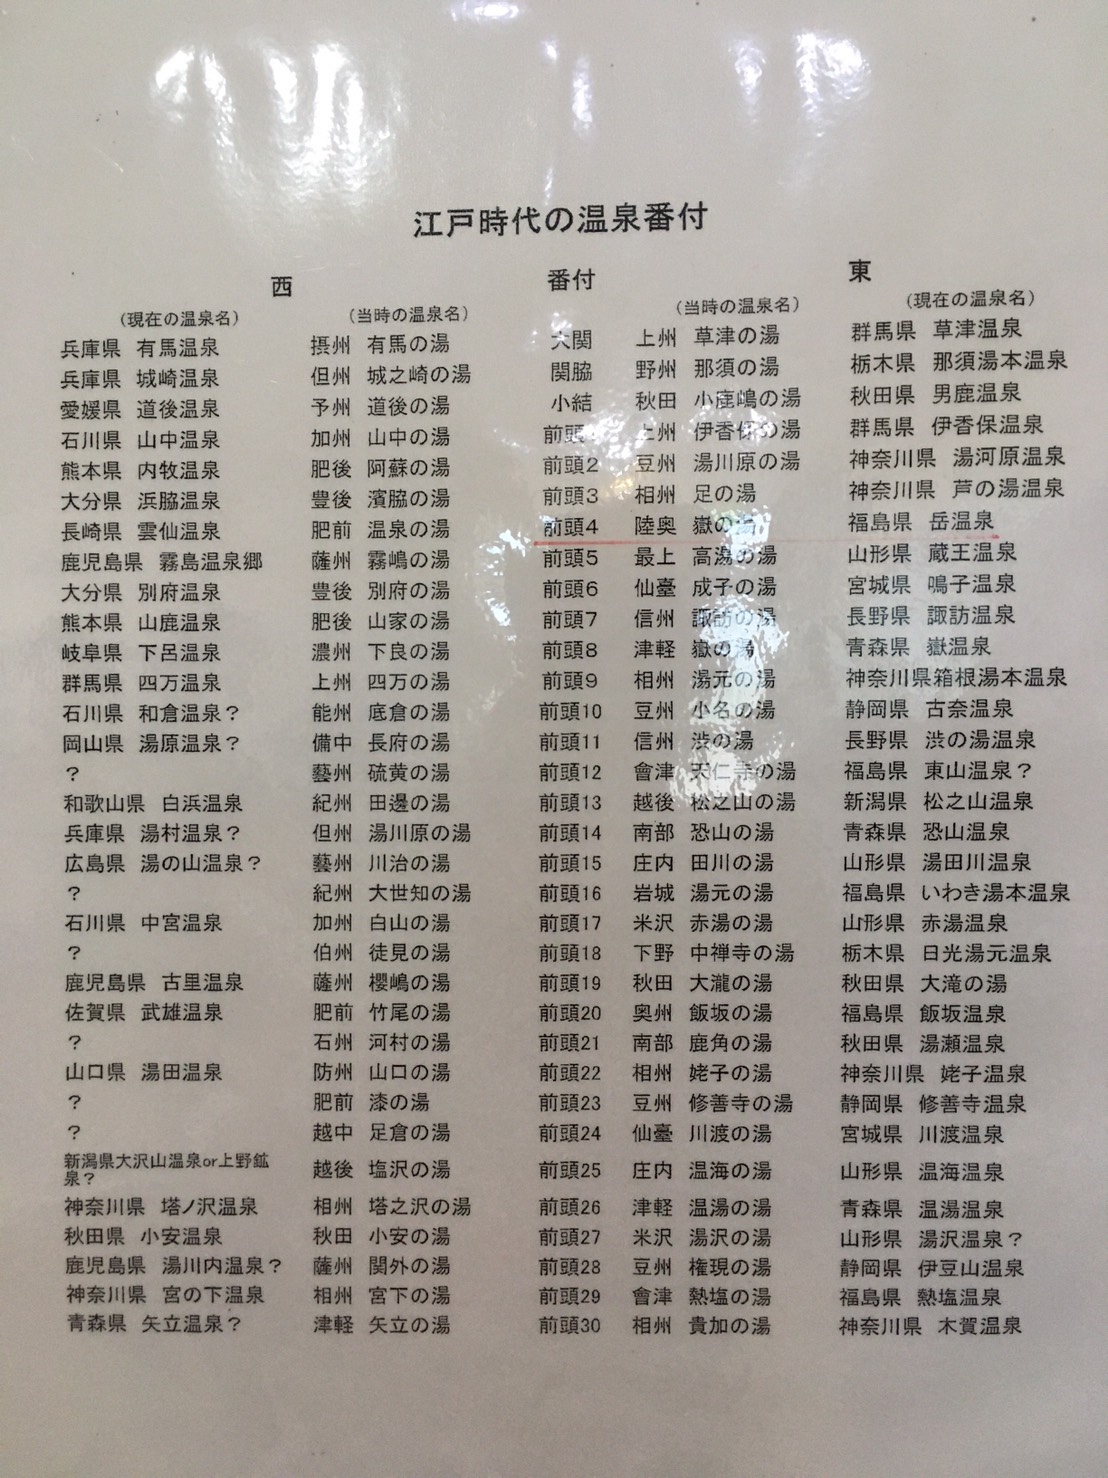 江戸時代の温泉番付
西 番付 東
（現在の温泉名） （当時の温泉名） （当時の温泉名） （現在の温泉名）
兵庫県 有馬温泉 摂州 有馬の湯 大関 上州 草津の湯 群馬県 草津温泉
兵庫県 城崎温泉 但州 城之崎の湯 関脇 野州 那須の湯 栃木県 那須湯本温泉
愛媛県 道後温泉 予州 道後の湯 小結 秋田 小鹿嶋の湯 秋田県 男鹿温泉
石川県 山中温泉 加州 山中の湯 前頭1 上州 伊香保の湯 群馬県 伊香保温泉
熊本県 内牧温泉 肥後 阿蘇の湯 前頭2 豆州 湯川原の湯 神奈川県 湯河原温泉
大分県 浜脇温泉 豊後 濱脇の湯 前頭3 相州 足の湯 神奈川県 芦の湯温泉
長崎県 雲仙温泉 肥前 温泉の湯 前頭4 陸奥 嶽の湯 福島県 岳温泉
鹿児島県 霧島温泉郷 薩州 霧嶋の湯 前頭5 最上 高湯の湯 山形県 蔵王温泉
大分県 別府温泉 豊後 別府の湯 前頭6 仙臺 成子の湯 宮城県 鳴子温泉
熊本県 山鹿温泉 肥後 山家の湯 前頭7 信州 諏訪の湯 長野県 諏訪温泉
岐阜県 下呂温泉 濃州 下良の湯 前頭8 津軽 嶽の湯 青森県 嶽温泉
群馬県 四万温泉 上州 四万の湯 前頭9 相州 湯元の湯 神奈川県箱根湯本温泉
石川県 和倉温泉？ 能州 底倉の湯 前頭10 豆州 小名の湯 静岡県 古奈温泉
岡山県 湯原温泉？ 備中 長府の湯 前頭11 信州 渋の湯 長野県 渋の湯温泉
？ 藝州 硫黄の湯 前頭12 會津 天仁寺の湯 福島県 東山温泉？
和歌山県 白浜温泉 紀州 田邊の湯 前頭13 越後 松之山の湯 新潟県 松之山温泉
兵庫県 湯村温泉？ 但州 湯川原の湯 前頭14 南部 恐山の湯 青森県 恐山温泉
広島県 湯の山温泉？ 藝州 川治の湯 前頭15 庄内 田川の湯 山形県 湯田川温泉
？ 紀州 大世知の湯 前頭16 岩城 湯元の湯 福島県 いわき湯本温泉
石川県 中宮温泉 加州 白山の湯 前頭17 米沢 赤湯の湯 山形県 赤湯温泉
？ 伯州 徒見の湯 前頭18 下野 中禅寺の湯 栃木県 日光湯元温泉
鹿児島県 古里温泉 薩州 櫻嶋の湯 前頭19 秋田 大瀧の湯 秋田県 大滝の湯
佐賀県 武雄温泉 肥前 竹尾の湯 前頭20 奥州 飯坂の湯 福島県 飯坂温泉
？ 石州 河村の湯 前頭21 南部 鹿角の湯 秋田県 湯瀬温泉
山口県 湯田温泉 防州 山口の湯 前頭22 相州 姥子の湯 神奈川県 姥子温泉
？ 肥前 漆の湯 前頭23 豆州 修善寺の湯 静岡県 修善寺温泉
？ 越中 足倉の湯 前頭24 仙臺 川渡の湯 宮城県 川渡温泉
新潟県大沢山温泉or上野鉱
泉？ 越後 塩沢の湯 前頭25 庄内 温海の湯 山形県 温海温泉
神奈川県 塔ノ沢温泉 相州 塔之沢の湯 前頭26 津軽 温湯の湯 青森県 温湯温泉
秋田県 小安温泉 秋田 小安の湯 前頭27 米沢 湯沢の湯 山形県 湯沢温泉？
鹿児島県 湯川内温泉？ 薩州 関外の湯 前頭28 豆州 権現の湯 静岡県 伊豆山温泉
神奈川県 宮の下温泉 相州 宮下の湯 前頭29 會津 熱塩の湯 福島県 熱塩温泉
青森県 矢立温泉？ 津軽 矢立の湯 前頭30 相州 貴加の湯 神奈川県 木賀温泉